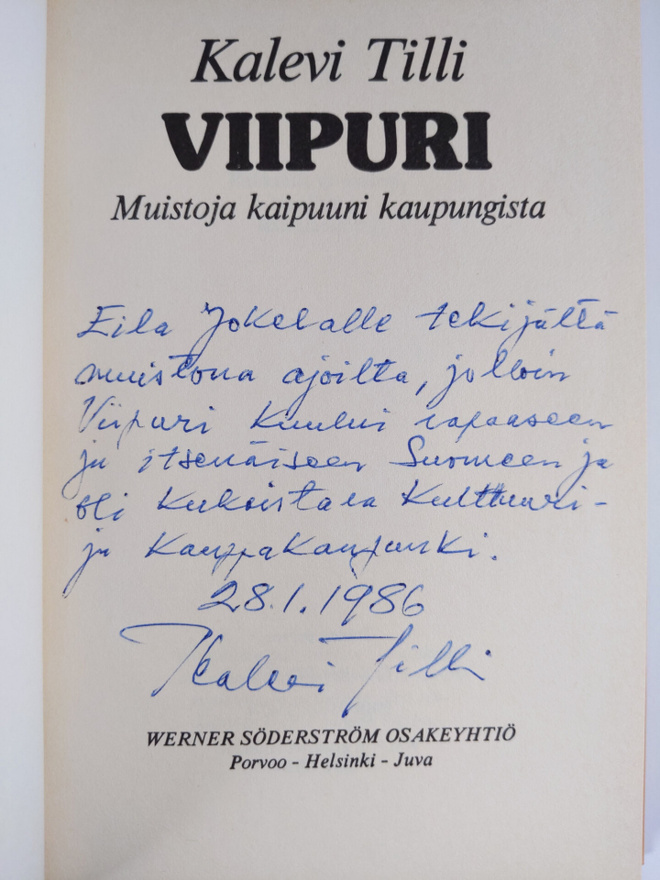 Kalevi Tilli
VIIPURI
Muistoja kaipuuni kaupungista
Eila Jokelalle tekijältä
muistona ajoilta, jolloin
Viipuri kuului vapaaseen
ja itsenäiseen Suomeen ja
oli kukoistava kulttuuri-
ja kauppakaupunki.
28.1.1986
Kalevi Tilli
WERNER SÖDERSTRÖM OSAKEYHTIÖ
Porvoo - Helsinki - Juva